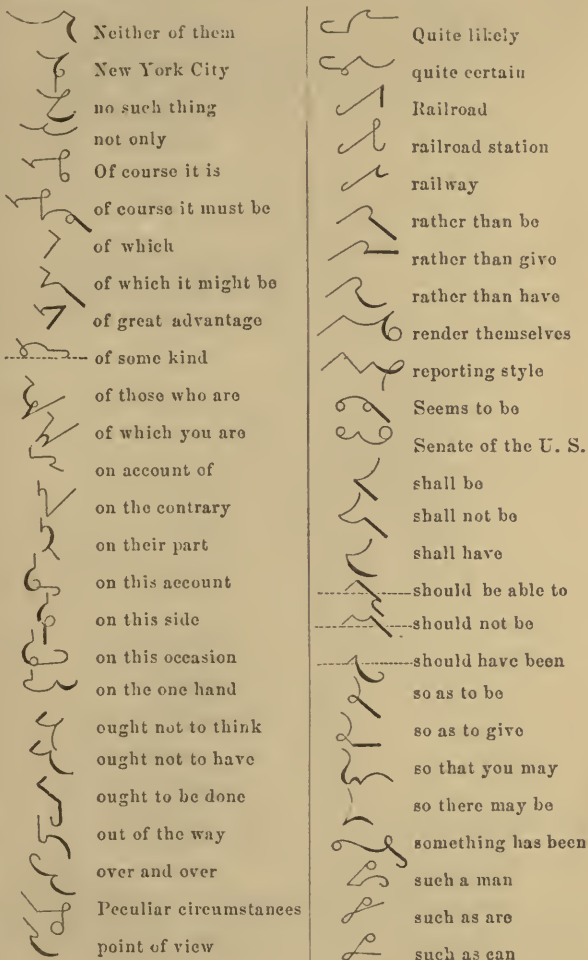 Neither of them
New York City
no such thing
not only
Of course it is
of course it must be
of which
of which it might be
of great advantage
of some kind
of those who are
of which you are
on account of
on the contrary
on their part
on this account
on this side
on this occasion
on the one hand
ought not to think
ought not to have
ought to be done
out of the way
over and over
Peculiar circumstances
point of view
Quite likely
quite certain
Railroad
railroad station
railway
rather than be
rather than give
rather than have
render themselves
reporting style
Seems to be
Senate of the U. S.
shall be
shall not be
shall have
should be able to
should not be
should have been
so as to be
so as to give
so that you may
so there may be
something has been
such a man
such as are
such as can